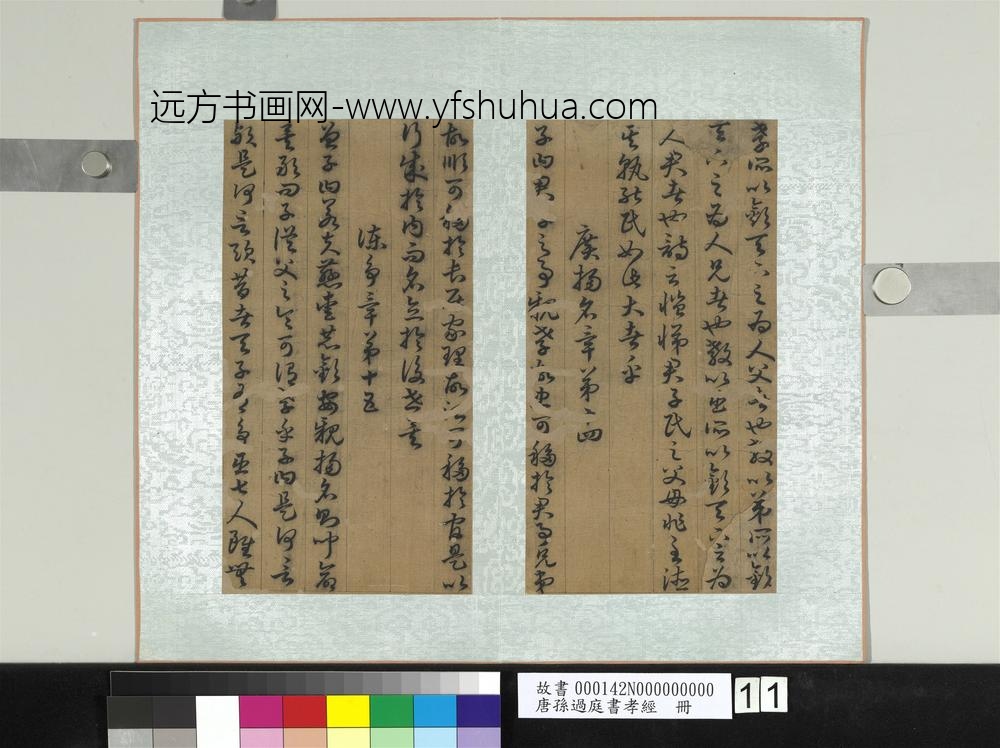 远方书画网-www.yfshuhua.com
孝所以敬天下之為人父者也教以弟所以敬
天下之為人兄者也教以臣所以敬天下之為
人君者也詩云愷悌君子民之父母非至德
其孰能民如此大者乎
廣揚名章第十四
子曰君子之事親孝故忠可移於君事兄弟
故順可移於長居家理故治可移於官是以
行成於內而名立於後世矣
諫爭章第十五
曾子曰若夫慈愛恭敬安親揚名則聞命
矣敢問子從父之令可謂孝乎子曰是何言
歟是何言歟昔者天子有爭臣七人雖無
故書 000142N000000000
唐孫過庭書孝經 冊
11